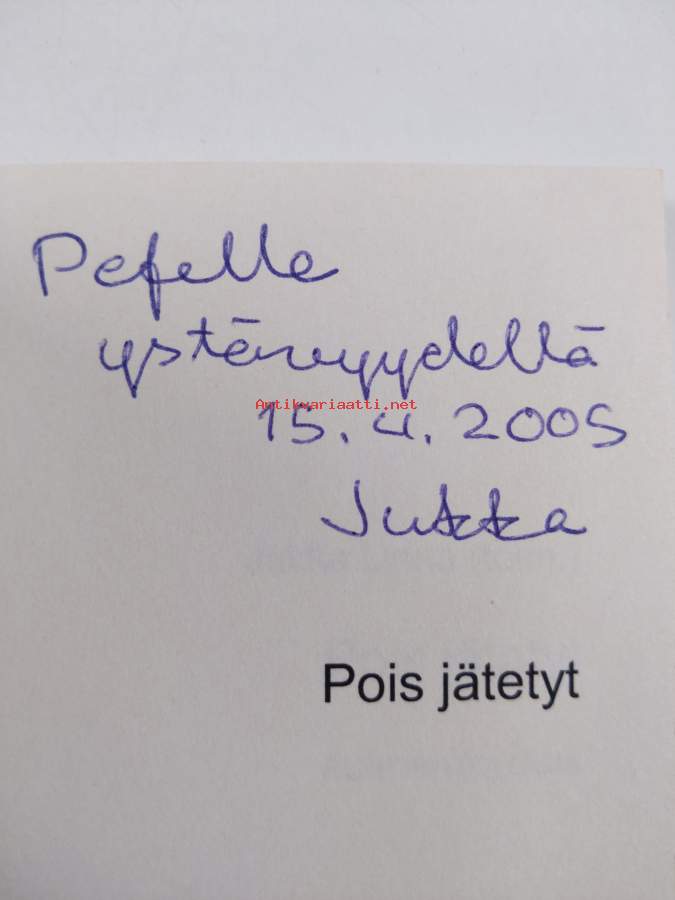 Pefelle
ystävyydellä
Antikvariaatti.net
15.4.2005
Jukka
Pois jätetyt